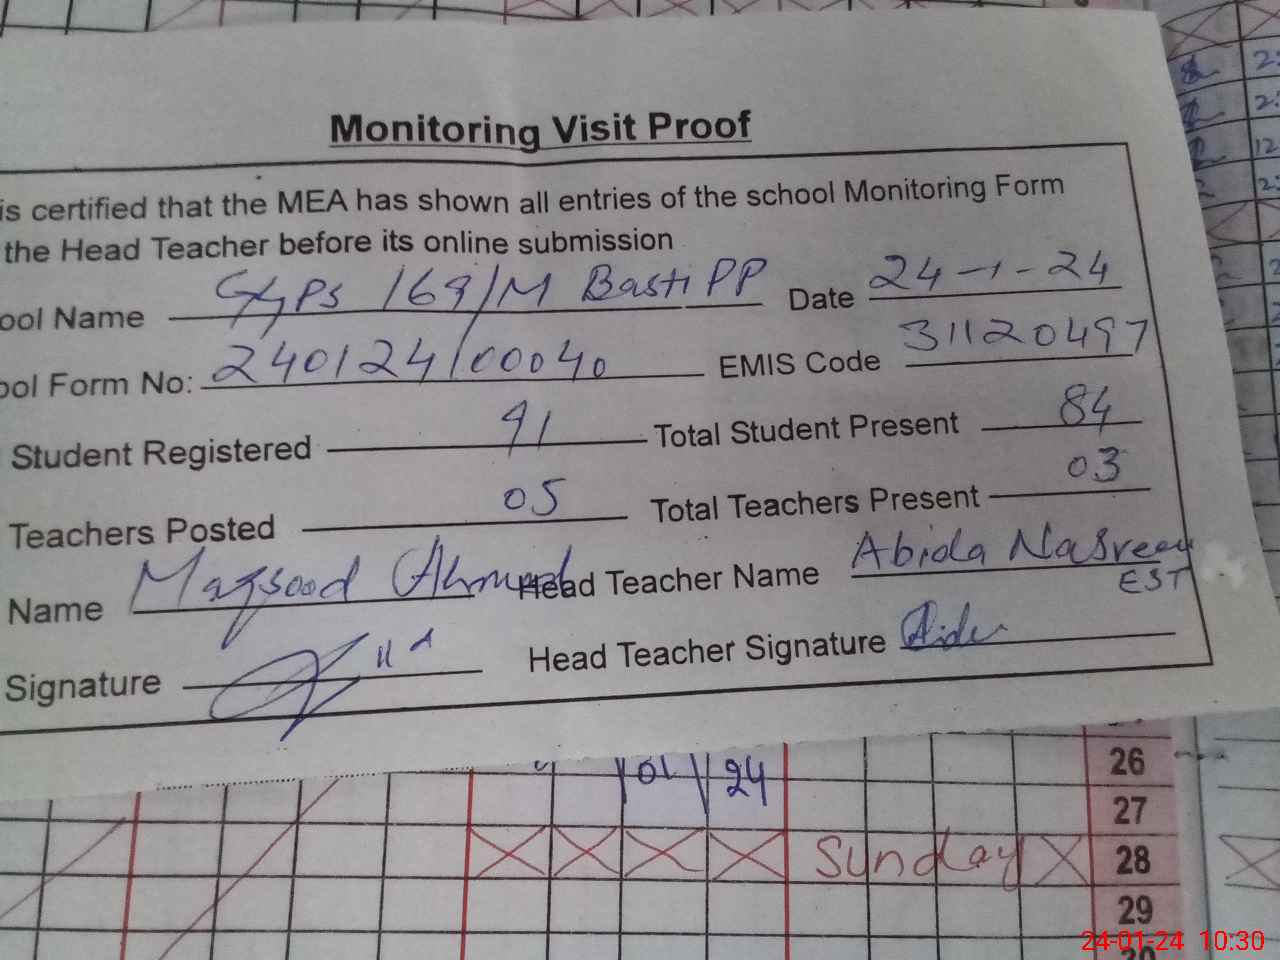 Monitoring Visit Proof
is certified that the MEA has shown all entries of the school Monitoring Form
the Head Teacher before its online submission
ool Name GGPS 169/M Basti PP Date 24-1-24
ool Form No: 240124100040 EMIS Code 31120497
Student Registered 91 Total Student Present 84
Teachers Posted 05 Total Teachers Present 03
Name Maqsood Ahmad Head Teacher Name Abida Nasreen
EST
Signature Head Teacher Signature
01/24
26
27
Sunday 28
29
30
24-01-24 10:30